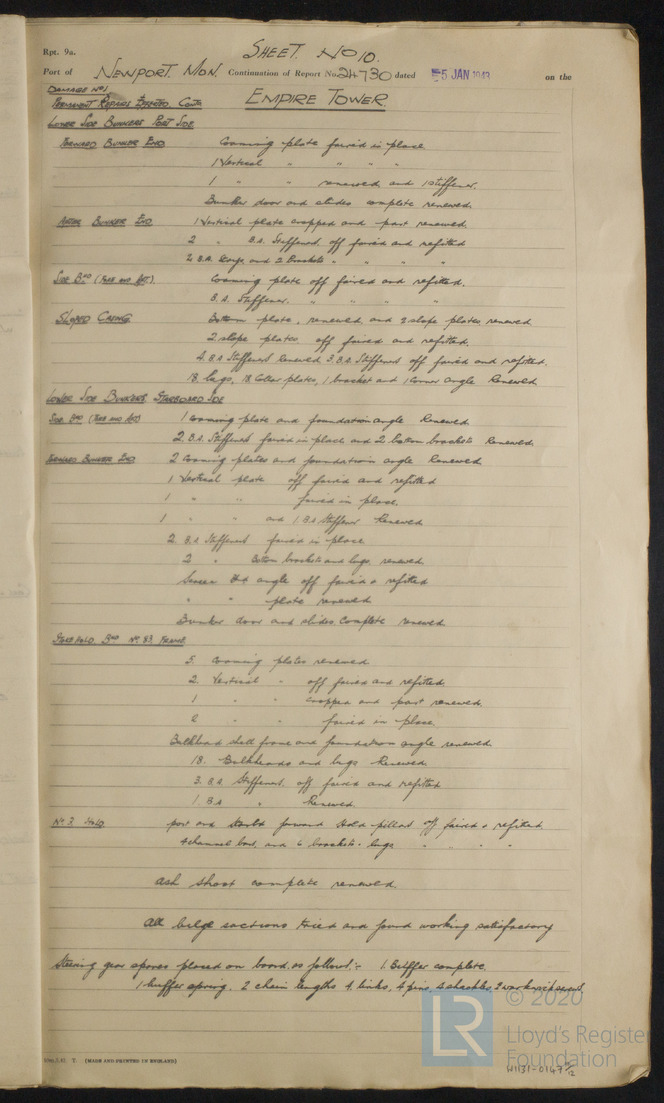 Rpt. 9a.
SHEET. No 10.
Port of NEWPORT. MON. Continuation of Report No. 24730 dated 5 JAN 1943 on the
DAMAGE No 1.
PERMANENT REPAIRS EFFECTED. Contd
EMPIRE TOWER.
LOWER SIDE BUNKERS PORT SIDE
FORWARD BUNKER END Coaming plate faired in place
1 Vertical " " " "
1 " " renewed and 1 stiffener.
Bunker door and slides complete renewed.
AFTER BUNKER END 1 Vertical plate cropped and part renewed.
2 " B.A. Stiffeners off faired and refitted
2 B.A. and 2 Brackets " " " "
SIDE BHD (FORE AND AFT). Coaming plate off faired and refitted.
B.A. Stiffener. " " " "
SLOPED CASING. Bottom plate, renewed and 3 slope plates, renewed
2 slope plates, off faired and refitted.
4. B.A Stiffeners Renewed 3. B.A. Stiffeners off faired and refitted.
18. lugs, 18 Collar plates, 1 bracket and 1 Corner angle Renewed
LOWER SIDE BUNKERS STARBOARD SIDE
SIDE BHD (FORE AND AFT) 1 coaming plate and foundation angle Renewed
2. B.A. Stiffeners faired in place and 2 bottom brackets Renewed.
FORWARD BUNKER END 2 Coaming plates and foundation angle Renewed.
1 Vertical plate off faired and refitted
1 " " faired in place.
1 " " and 1. B.A Stiffener Renewed
2. B.A Stiffeners faired in place
2 " Bottom brackets and lugs, renewed.
Bhd angle off faired & refitted
" " plate renewed
Bunker door and slides Complete renewed.
BHD No. 83. FRAME.
5. coaming plates renewed
2. Vertical " off faired and refitted.
1 " " cropped and part renewed.
2 " " faired in place.
Bulkhead shell frame and foundation angle renewed.
18. Bulkheads and lugs Renewed.
3. B.A. Stiffeners, off faired and refitted
1. B.A " Renewed.
No. 3. HOLD. port and starbd forward Hold pillar off faired & refitted
4 channel bars, and 6 brackets. lugs " " " "
Ash shoot complete renewed.
All bilge suctions tried and found working satisfactory
Steering gear spares placed on board, as follows:- 1. Buffer complete
1 buffer spring. 2 chain lengths 4, links, 4 pins, 4 shackles,
© 2020
LR
Lloyd's Register
Foundation
W1131-0147
T. (MADE AND PRINTED IN ENGLAND)